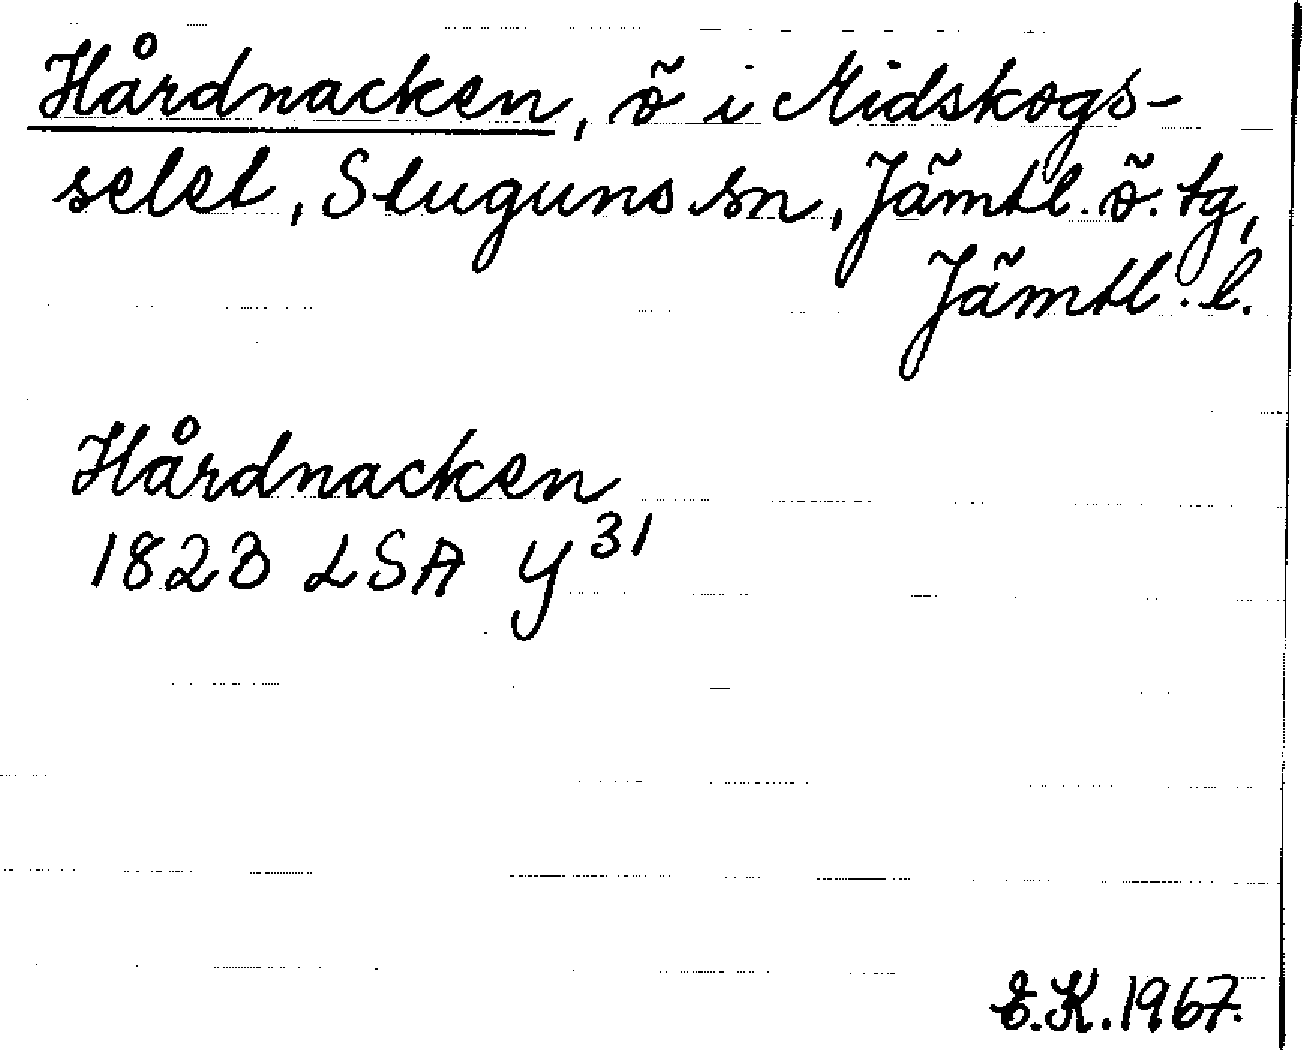 Hårdnacken, ö i Midskogs-
selet, Stuguns sn, Jämtl. ö. tg,
Jämtl. l.
Hårdnacken
1823 LSA Y31
E.K. 1967.